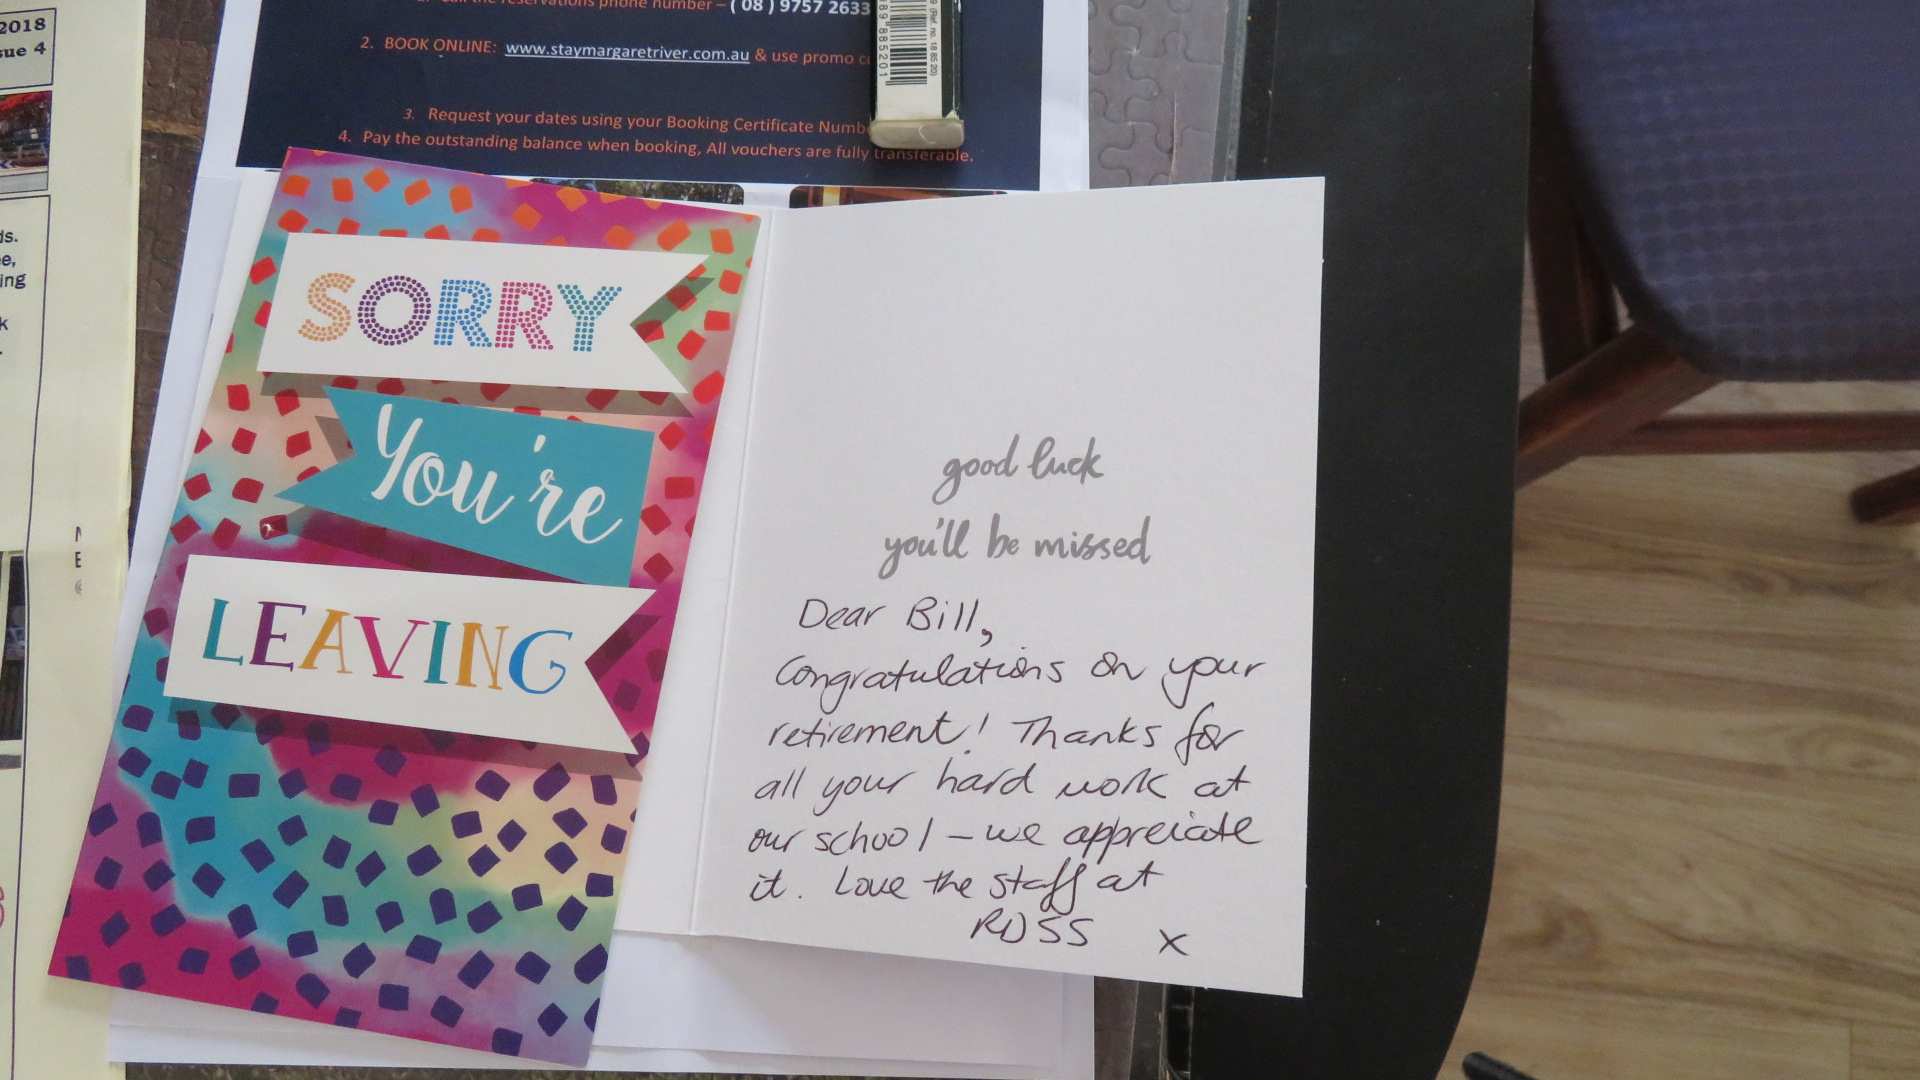 2018
sue 4
ds.
ee,
ing
k
N
E
@
reservations phone number – ( 08 ) 9757 2633
2. BOOK ONLINE: www.staymargaretriver.com.au & use promo
3. Request your dates using your Booking Certificate Numb
4. Pay the outstanding balance when booking, All vouchers are fully transferable.
9 (Ref. no. 18 85 20)
89 885201
SORRY
You're
LEAVING
good luck
you'll be missed
Dear Bill,
Congratulations on your
retirement! Thanks for
all your hard work at
our school – we appreciate
it. Love the staff at
RDSS x